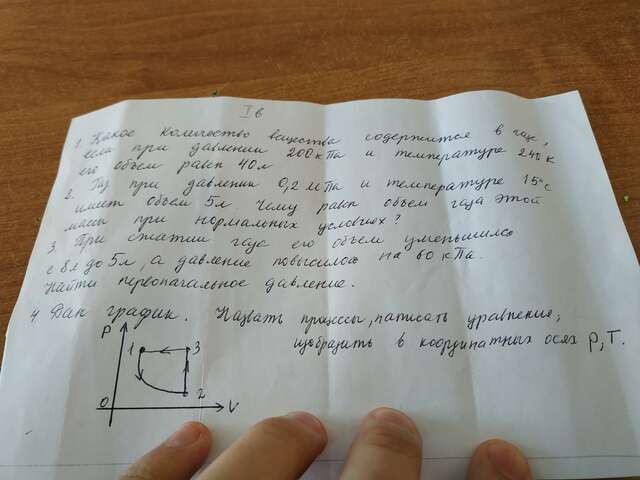 I в
1. Какое количество вещества содержится в газе,
если при давлении 200 кПа и температуре 240 К
его объем равен 40 л
2. Газ при давлении 0,2 МПа и температуре 15°С
имеет объем 5 л. Чему равен объем газа этой
массы при нормальных условиях?
3. При сжатии газа его объем уменьшился
с 8 л до 5 л, а давление повысилось на 60 кПа.
Найти первоначальное давление.
4. Дан график. Назвать процессы, написать уравнения,
изобразить в координатных осях p, T.
P
1 3
2
0 V